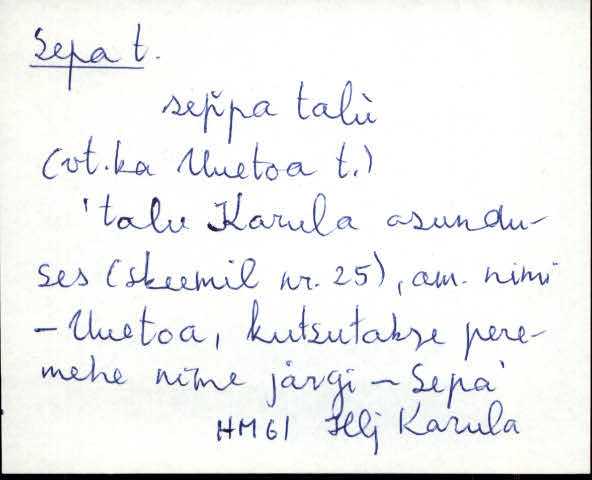 Sepa t.
sep̆pa talù
(vt. ka Uuetoa t.)
'talu Karula asundu-
ses (skeemil nr. 25), am. nimi
- Uuetoa, kutsutakse pere-
mehe nime järgi - Sepa'
HM 61 Hlj Karula